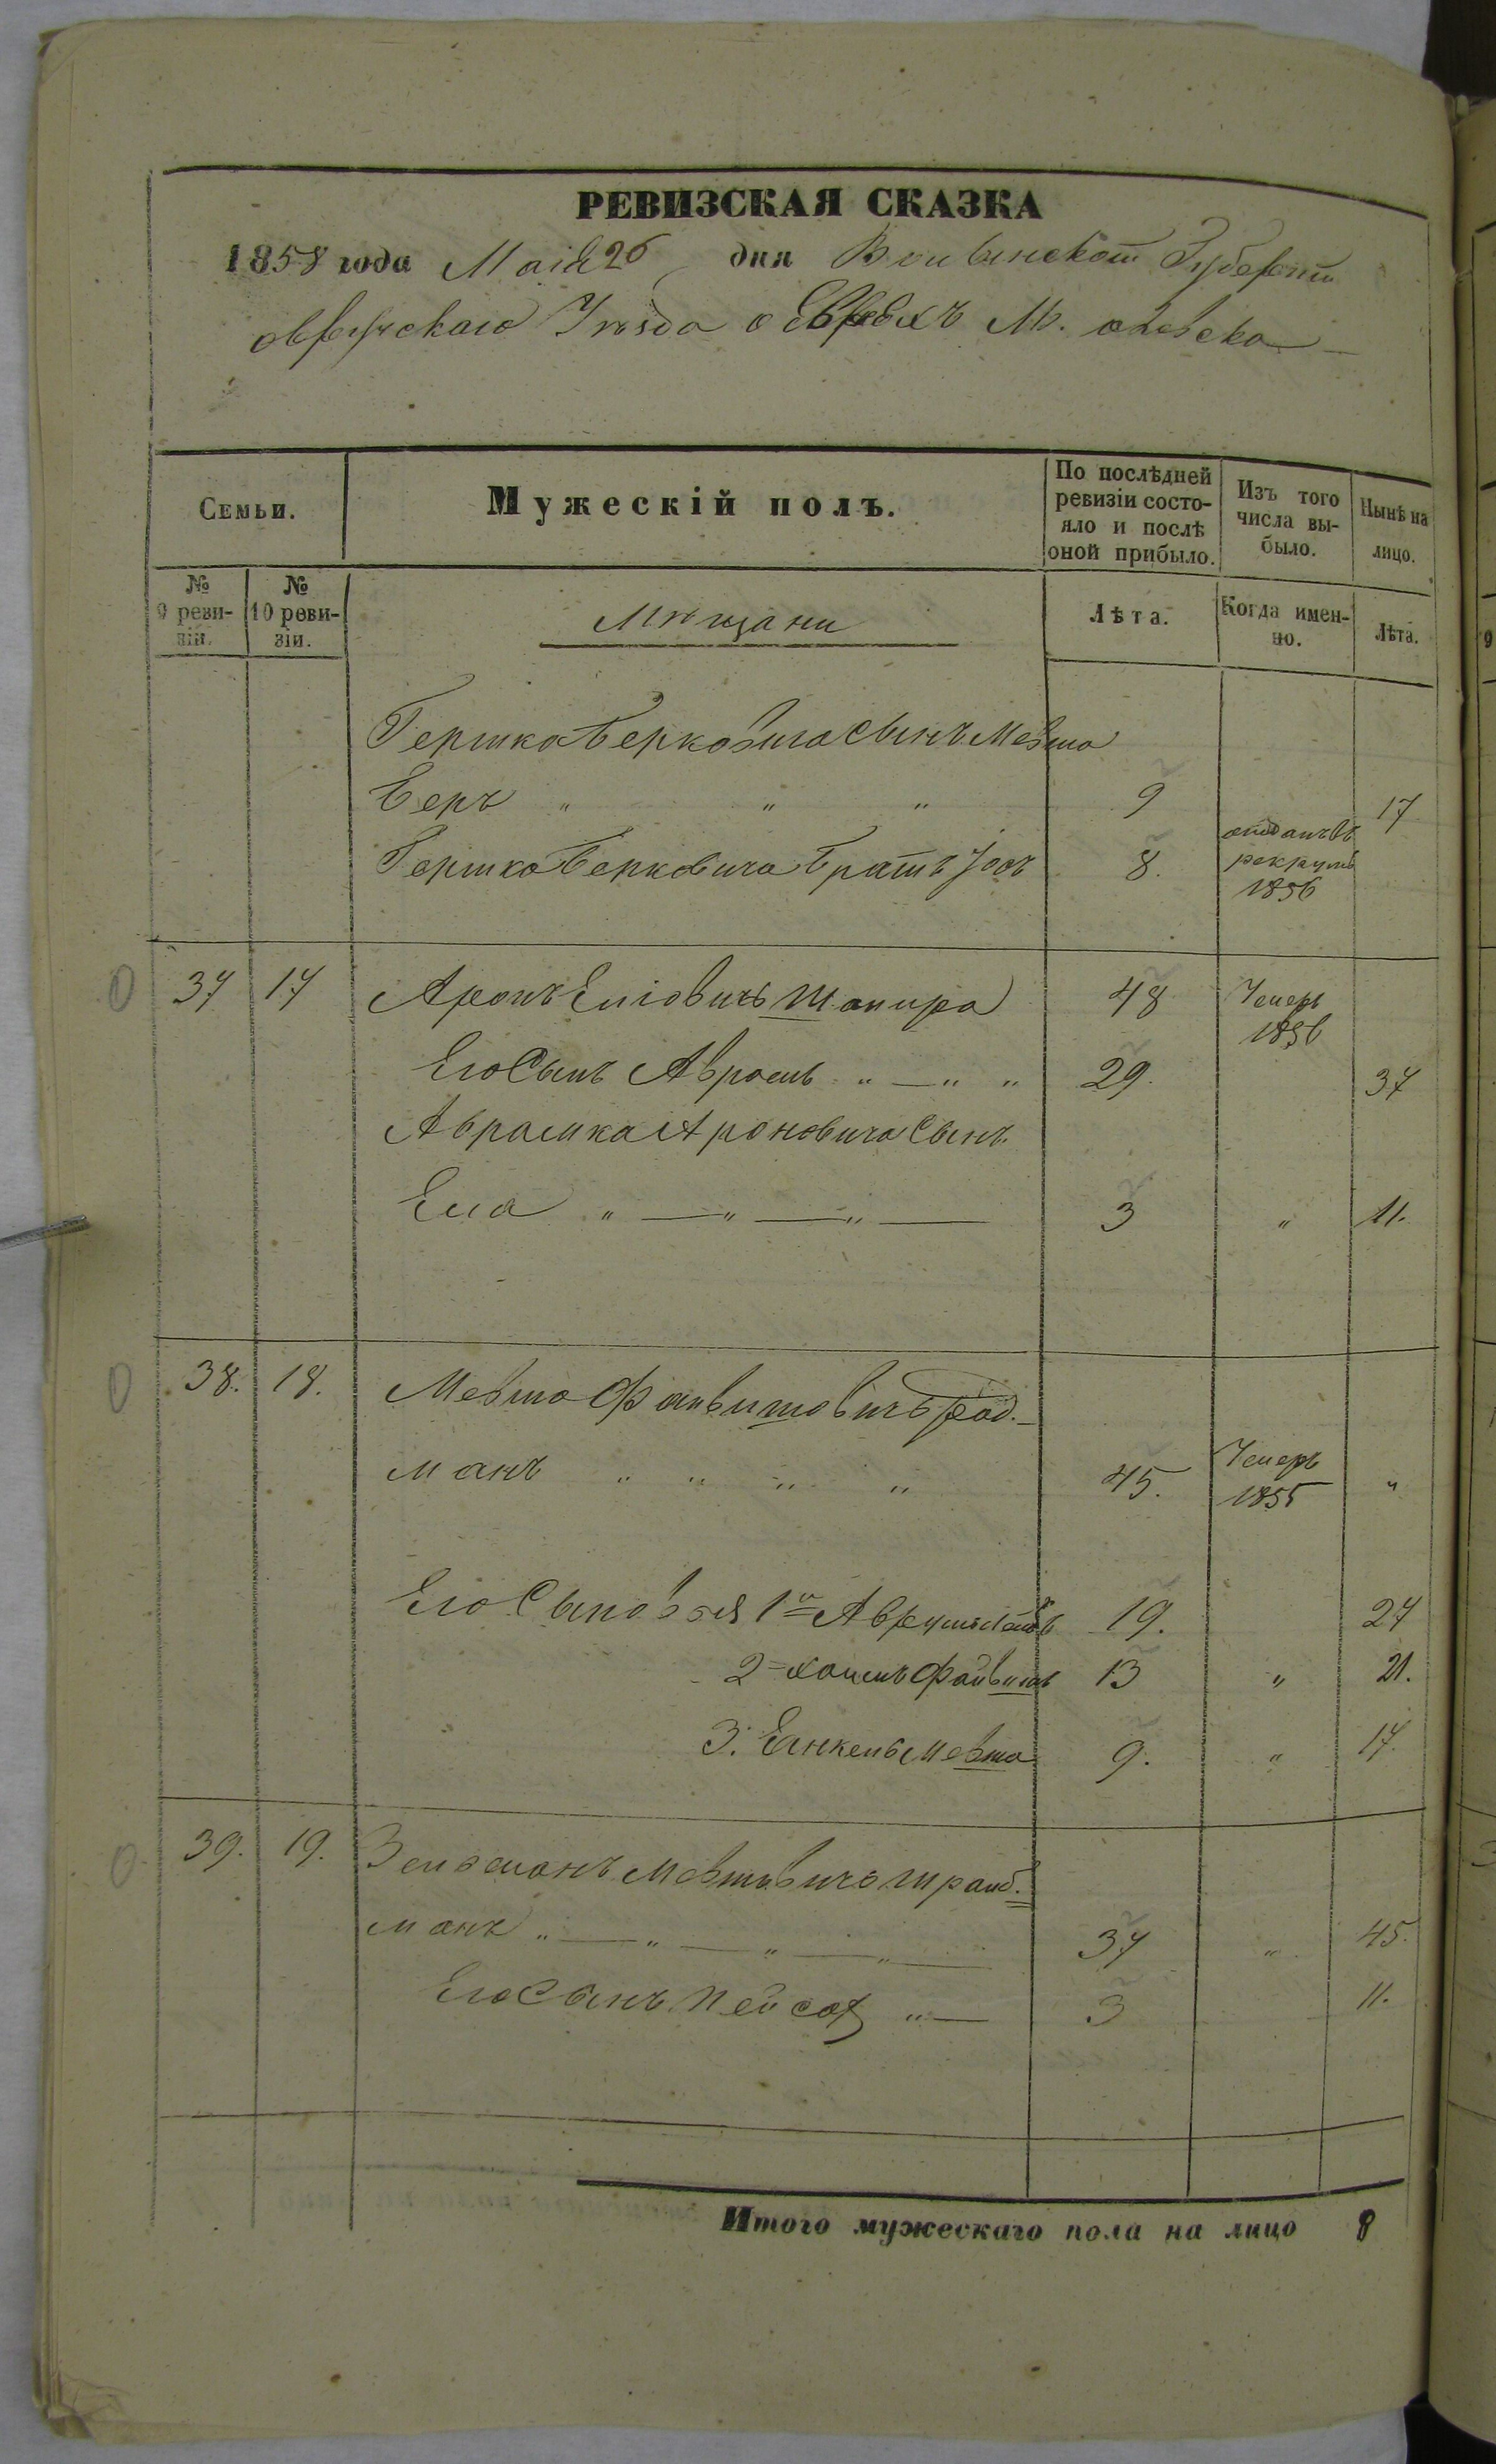 РЕВИЗСКАЯ СКАЗКА
1858 года Маія 26 дня Волынской Губерніи
Овручскаго Уѣзда о Евреяхъ М. Олевска
Семьи.
Мужескій полъ.
По послѣдней ревизіи состо-
яло и послѣ
оной прибыло.
Изъ того
числа вы-
было.
Нынѣ на
лицо.
№
9 реви-
зіи.
№
10 реви-
зіи.
Мѣщани
Лѣта.
Когда имен-
но.
Лѣта.
Гершка Берковича сынъ Мевша
Беръ " " " 9 17
Гершка Берковича братъ 8. отданъ въ
рекруты
1856
37 17 Аронъ Еліовичъ Шапира 48 Умеръ
1856
Его Сынъ Авромъ " — " " 29. 37
Аврамка Ароновича Сынъ
Ела " — " — " — 3 " 11.
38. 18. Мевша Файвишовичъ
манъ " " " " 45. Умеръ
1855 "
Его Сыновья 1й 19. 27
2 = Хаимъ Файвишъ 13 " 21.
3. Янкель Мевша 9. " 17.
39. 19. Зельманъ Мевшовичъ
манъ " — " — " — " — 37 " 45.
Его Сынъ Пейсах " — 3 11.
Итого мужескаго пола на лицо 8